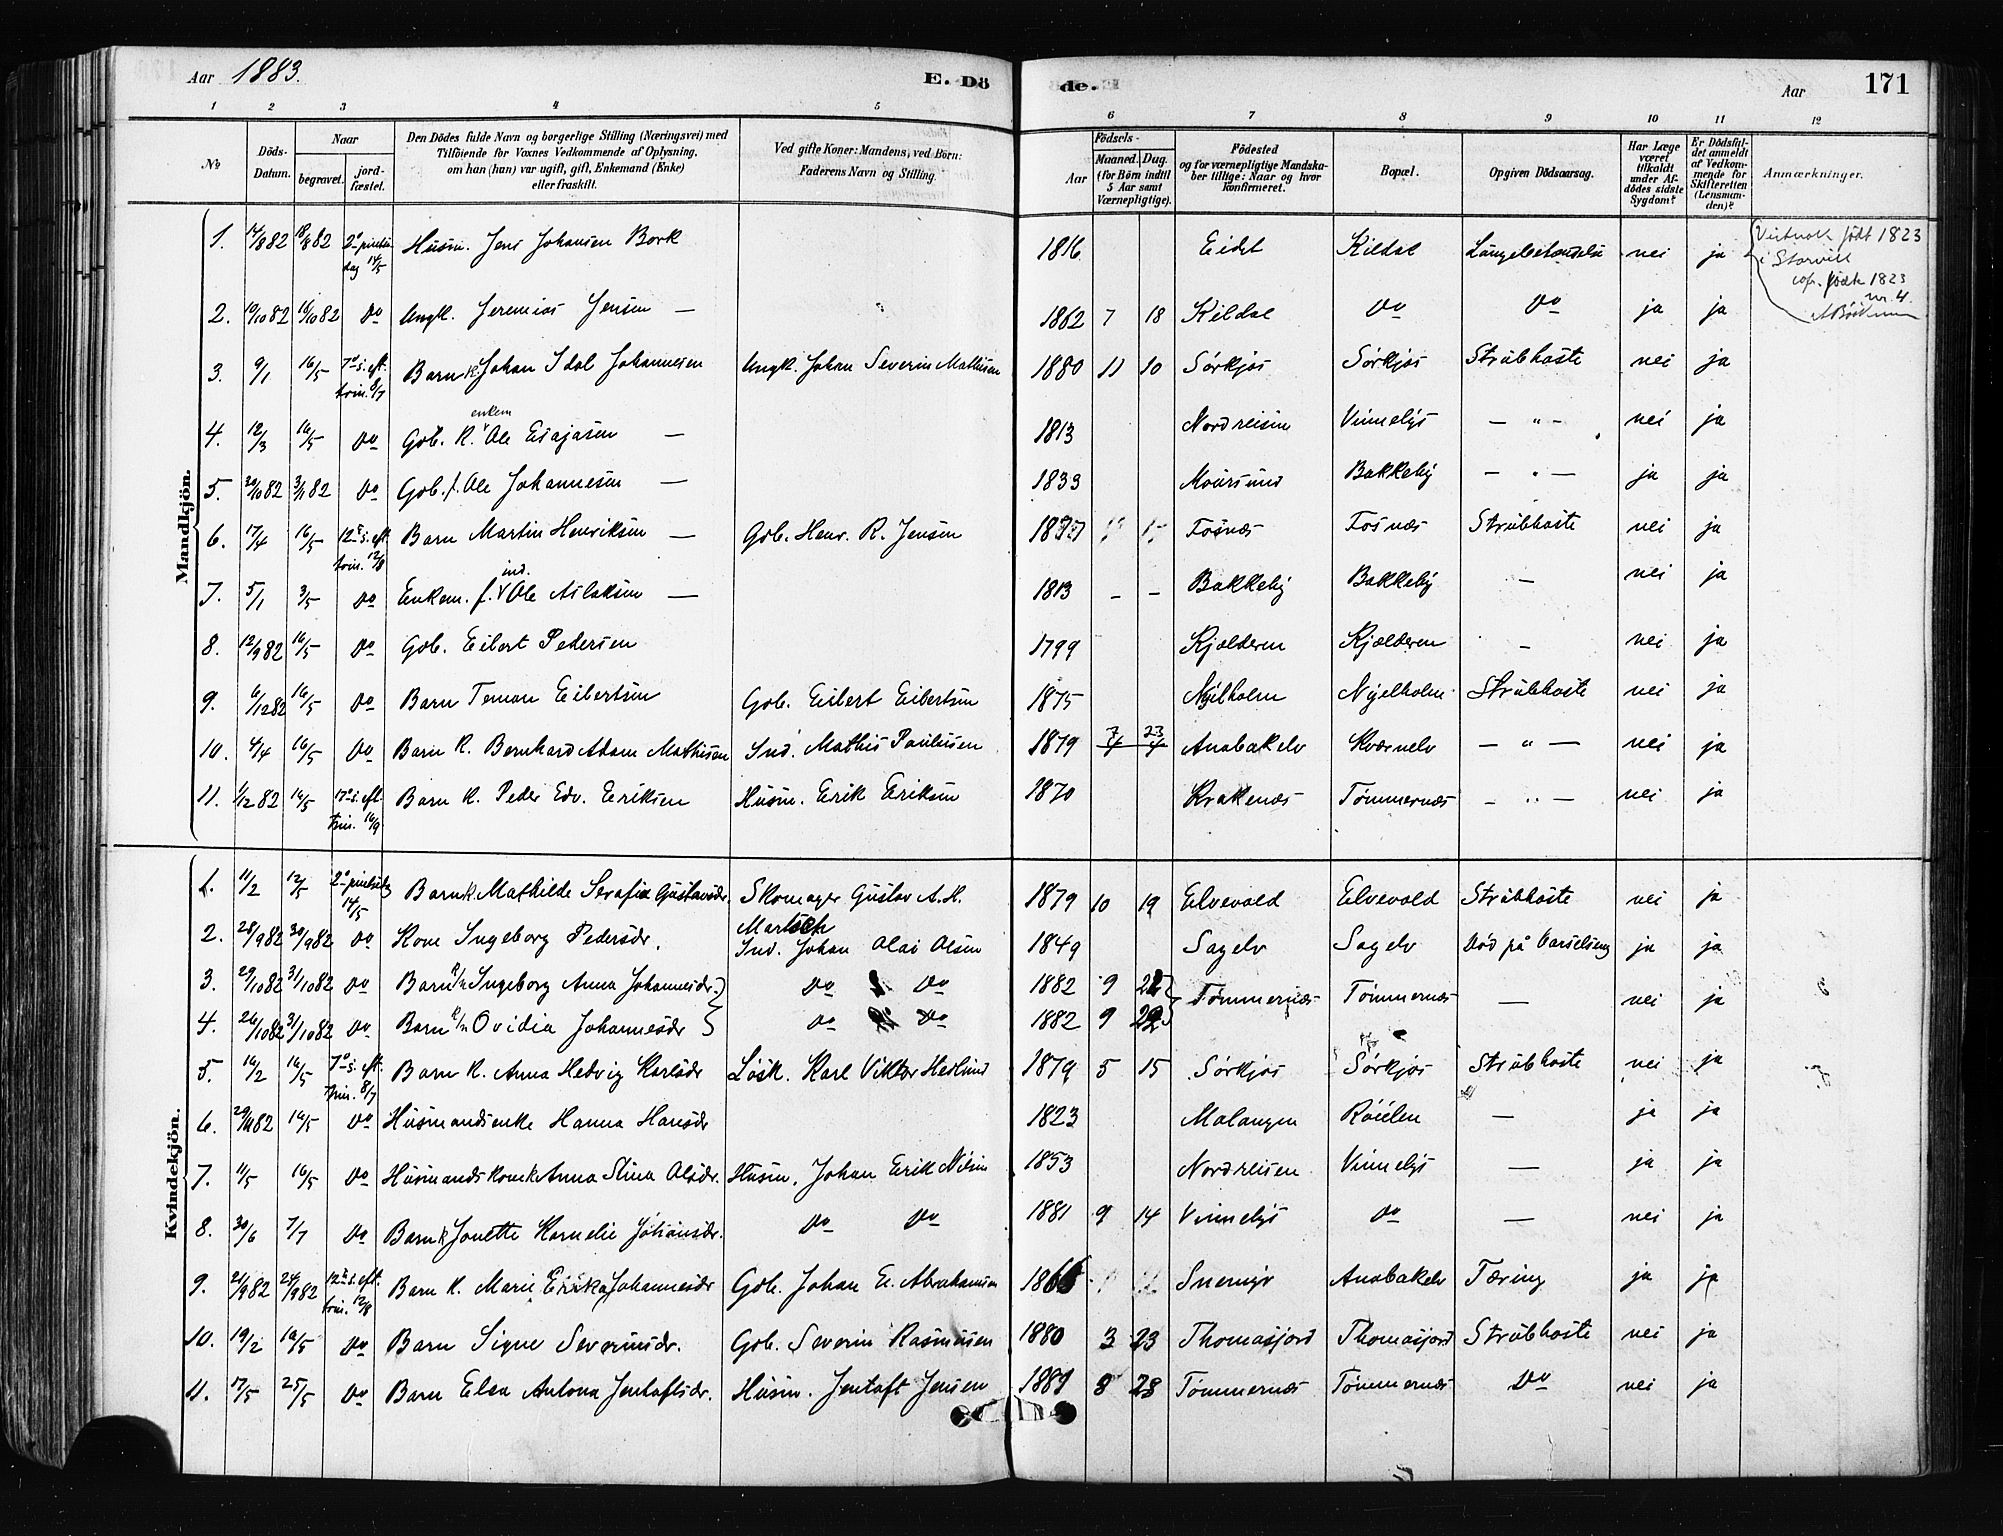 Aar 1883. E. Dö de. Aar 171
1 2 3 4 5 6 7 8 9 10 11 12
№ Döds-Datum. Naar begravet. jord-fæstet. Den Dödes fulde Navn og borgerlige Stilling (Næringsvei) med Tilföiende for Voxnes Vedkommende af Oplysning, om han (hun) var ugift, gift, Enkemand (Enke) eller fraskilt. Ved gifte Koner: Mandens, ved Börn: Faderens Navn og Stilling. Födsels- Aar Maaned. Dag. (for Börn indtil 5 Aar samt Værnepligtige). Födested og for værnepligtige Mandskaber tillige: Naar og hvor Konfirmeret. Bopæl. Opgiven Dödsaarsag. Har Læge været tilkaldt under Afdödes sidste Sygdom? Er Dödsfaldet anmeldt af Vedkommende for Skifteretten (Lensmanden)? Anmærkninger.
Mandkjön.
1. 14/8 82 18/8 82 2 pintsedag 14/5 Husm. Jens Johansen Bork 1816 Eidet Kildal nei ja
født 1823
i
1823
nr. 4.
2. 10/10 82 16/10 82 Do Ungk. Jeremias Jensen — 1862 7 18 Kildal Do Do ja ja
3. 9/1 16/5 7 s. eft. trin. 8/7 Barn K. Johan Idal Johannesen Ungk. Johan Severin Mathisen 1880 11 10 Sørkjos Sørkjos Strubhoste nei ja
4. 12/3 16/5 Do Gbb. K. enkem Ole Esajasen — 1813 Nordreisen Vinnelys — " — nei ja
5. 20/10 82 3/11 82 Do Gbb. f. Ole Johannesen — 1833 Moursund Bakkeby — " — ja ja
6. 17/4 16/5 12 s. eft. trin. 12/8 Barn Martin Henriksen — Gbb. Henr. R. Jensen Fosnæs Fosnæs Strubhoste nei ja
7. 5/1 3/5 Do Enkem. f. ind. Ole Aslaksen — 1813 – – Bakkeby Bakkeby — nei ja
8. 12/9 82 16/5 Do Gbb. Eibert Pedersen 1799 Kjelderen Kjelderen – nei ja
9. 6/12 82 16/5 Do Barn Teman Eibertsen Gbb. Eibert Eibertsen 1875 Nyelholm Strubhoste nei ja
10. 4/4 16/5 Do Barn K. Bernhard Adam Mathisen Ind. Mathis Paulusen 1879 7/4 23/4 Anabakelv Kværnelv — " — nei ja
11. 1/12 82 16/5 17 s. eft. trin. 16/9 Barn K. Peder Edv. Eriksen Husm. Erik Eriksen 1870 Krakenæs Tømmernæs — " — nei ja
Kvindekjön.
1. 11/2 12/5 2 pintsedag 14/5 Barn K. Mathilde Serafia Gustavsdr. Skomager Gustav A. H. 1879 10 19 Elvevold Elvevold Strubhoste nei ja
Martsch
2. 28/9 82 30/9 82 Do Kone Ingeborg Pedersdr. Ind. Johan Olai Olsen 1849 Sagelv Sagelv Død på Barselseng ja ja
3. 29/10 82 31/10 82 Do Barn Ingeborg Anna Johannesdr. Do Do 1882 9 22 Tømmernæs Tømmernæs — nei ja
4. 26/10 82 31/10 82 Do Barn Ovidia Johannesdr Do Do 1882 9 22
5. 16/2 16/5 7 s. eft. trin. 8/7 Barn K. Anna Hedvig Karlsdr Løsk. Karl Viktor Hedlund 1879 5 15 Sørkjos Sørkjos Strubhoste nei ja
6. 29/11 82 16/5 Do Husmandsenke Hanna Hansdr 1823 Malangen Røielen — ja ja
7. 11/5 16/5 Do Husmandskone K. Anna Stina Olsdr. Husm. Johan Erik Nilsen 1853 Nordreisen Vinnelys — ja ja
8. 30/6 7/7 Do Barn K. Jonette Kornelie Johansdr. Do Do 1881 9 14 Vinnelys Do — nei ja
9. 21/9 82 24/9 82 12 s. eft. trin. 12/8 Barn K. Marie Erika Johannesdr Gbb. Johan E. Abrahamsen Anabakelv Tæring ja ja
10. 19/2 19/5 Do Barn Signe Severinsdr. Gbb. Severin Rasmussen 1880 3 23 Thomasjord Thomasjord Strubhoste nei ja
11. 17/5 25/5 Do Barn Elsa Antona Jentoftsdr. Husm. Jentoft Jensen 1881 8 28 Tømmernæs Tømmernæs Do nei ja